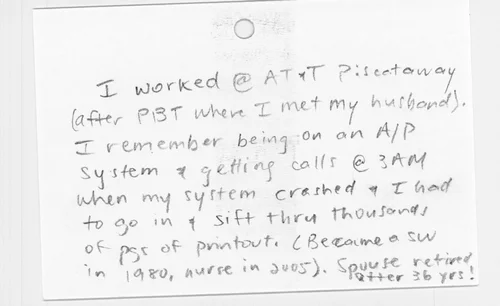 I worked @ AT&T Piscataway
(after PBT where I met my husband).
I remember being on an A/P
system & getting calls @ 3AM
when my system crashed & I had
to go in & sift thru thousands
of pgs of printout. (Became a SW
in 1980, nurse in 2005). Spouse retired
after 36 yrs!